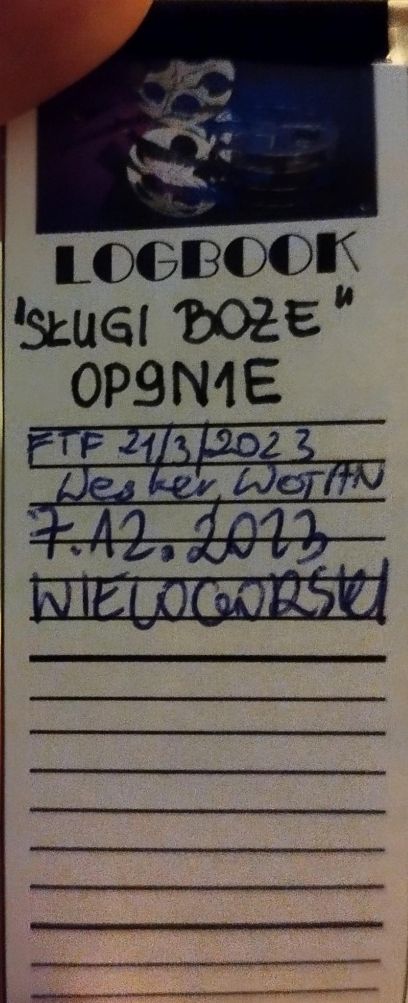 LOGBOOK
"SŁUGI BOŻE"
OP9N1E
FTF 21/3/2023
Wesker, WOTAN
7.12.2023
WIELOGORSKI